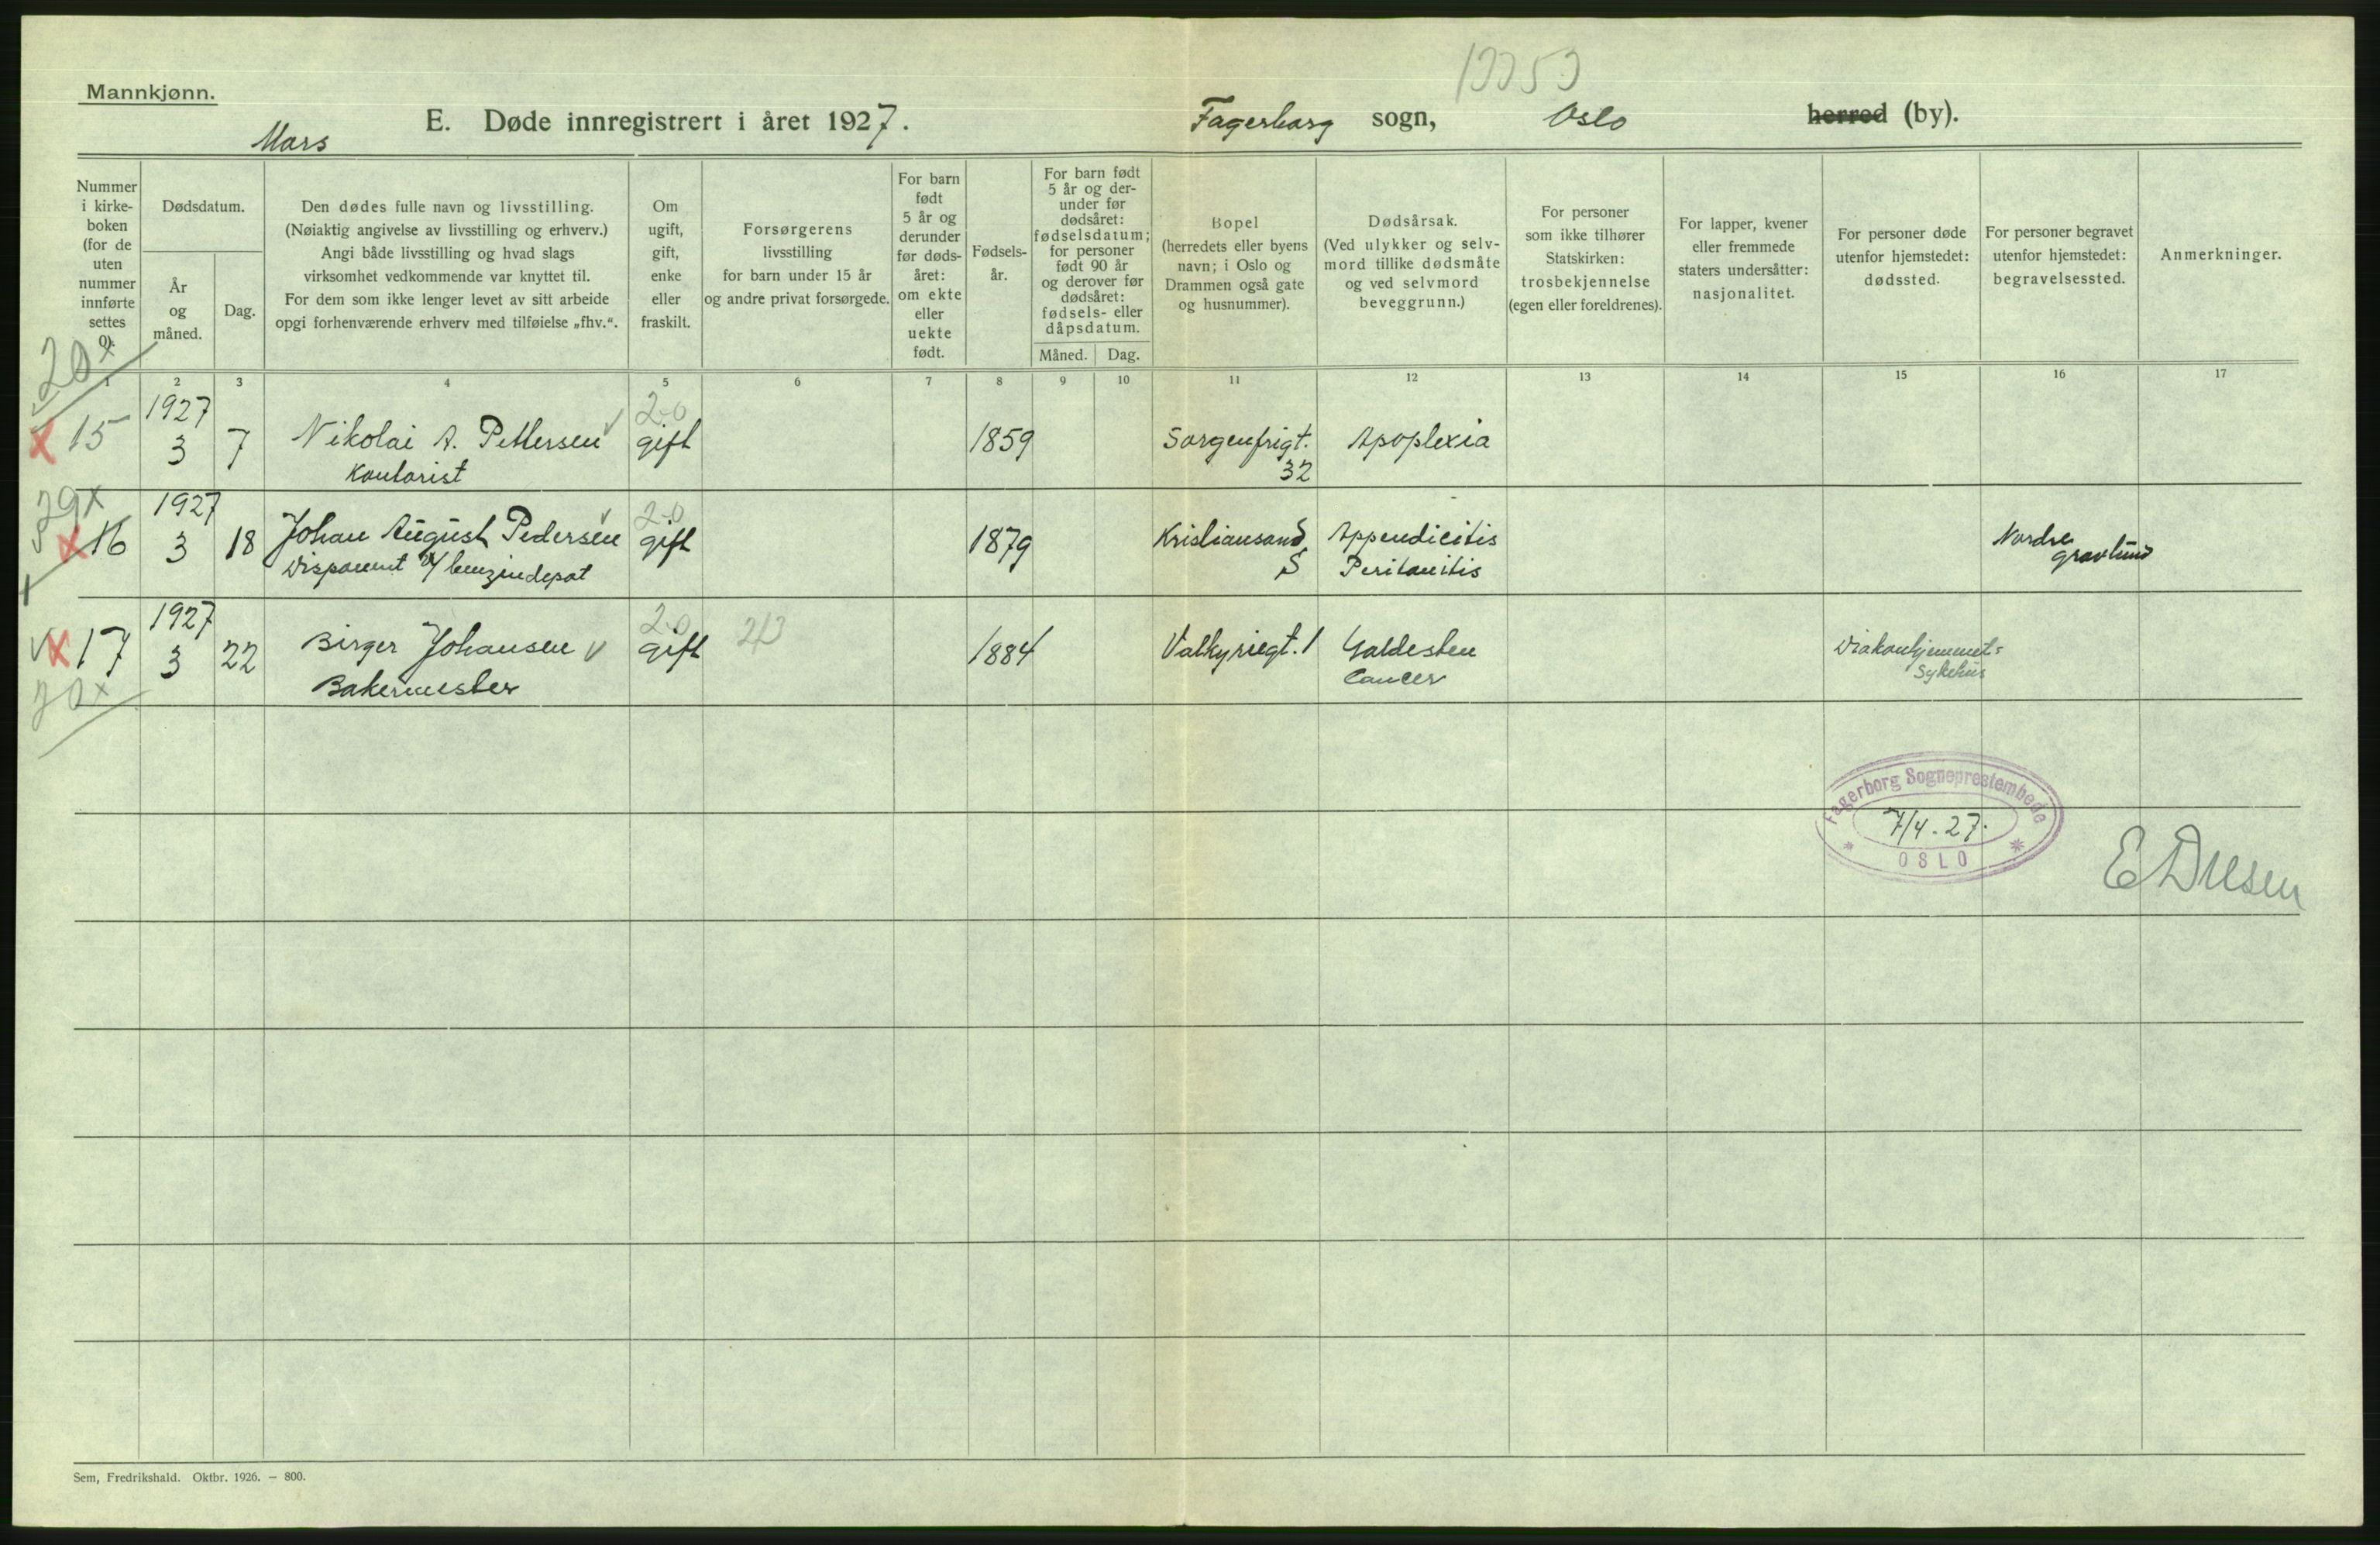 Mannkjønn.
E. Døde innregistrert i året 1927.
Mars
Fagerborg sogn, Oslo herred (by).
Nummer
i kirke-
boken
(for de
uten
nummer
innførte
settes
0).
Dødsdatum.
År
og
måned.
Dag.
Den dødes fulle navn og livsstilling.
(Nøiaktig angivelse av livsstilling og erhverv.)
Angi både livsstilling og hvad slags
virksomhet vedkommende var knyttet til.
For dem som ikke lenger levet av sitt arbeide
opgi forhenværende erhverv med tilføielse „fhv.“.
Om
ugift,
gift,
enke
eller
fraskilt.
Forsørgerens
livsstilling
for barn under 15 år
og andre privat forsørgede.
For barn
født
5 år og
derunder
før døds-
året:
om ekte
eller
uekte
født.
Fødsels-
år.
For barn født
5 år og der-
under før
dødsåret:
fødselsdatum;
for personer
født 90 år
og derover før
dødsåret:
fødsels- eller
dåpsdatum.
Måned. Dag.
Bopel
(herredets eller byens
navn; i Oslo og
Drammen også gate
og husnummer).
Dødsårsak.
(Ved ulykker og selv-
mord tillike dødsmåte
og ved selvmord
beveggrunn.)
For personer
som ikke tilhører
Statskirken:
trosbekjennelse
(egen eller foreldrenes).
For lapper, kvener
eller fremmede
staters undersåtter:
nasjonalitet.
For personer døde
utenfor hjemstedet:
dødssted.
For personer begravet
utenfor hjemstedet:
begravelsessted.
Anmerkninger.
1 2 3 4 5 6 7 8 9 10 11 12 13 14 15 16 17
20x
1927 2-0
x 15 3 7 Nikolai A. Pettersen v gift 1859 Sorgenfrigt. Apoplexia
Kontorist 32
1927 2-0
x 16 3 18 Johan August Pedersen v gift 1879 Kristiansand Appendicitis Nordre
Disponent v/ benzindepot S Peritonitis gravlund
1927 2-0 213
v x 17 3 22 Birger Johansen v gift 1884 Valkyriegt. 1 Galdesten Diakonhjemmets
Bakermester Cancer Sykehus
Fagerborg Sogneprestembede
7/4. 27.
* OSLO *
Sem, Fredrikshald. Oktbr. 1926. — 800.